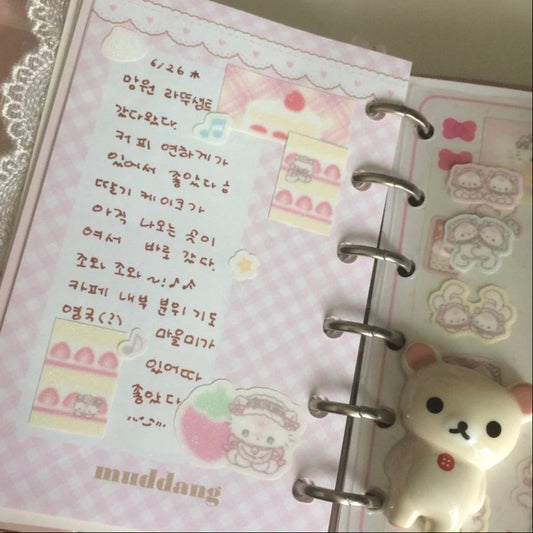 6/26 *
망원 라뚜셩트
갔다왔다.
커피 연하게가
있어서 좋았다 ㅎ
딸기 케이크가
아직 나오는 곳이
여서 바로 갔다.
조와 조와~!♪♪
카페 내부 분위기도
영국(?) 마을미가
있어따
좋았다
muddang